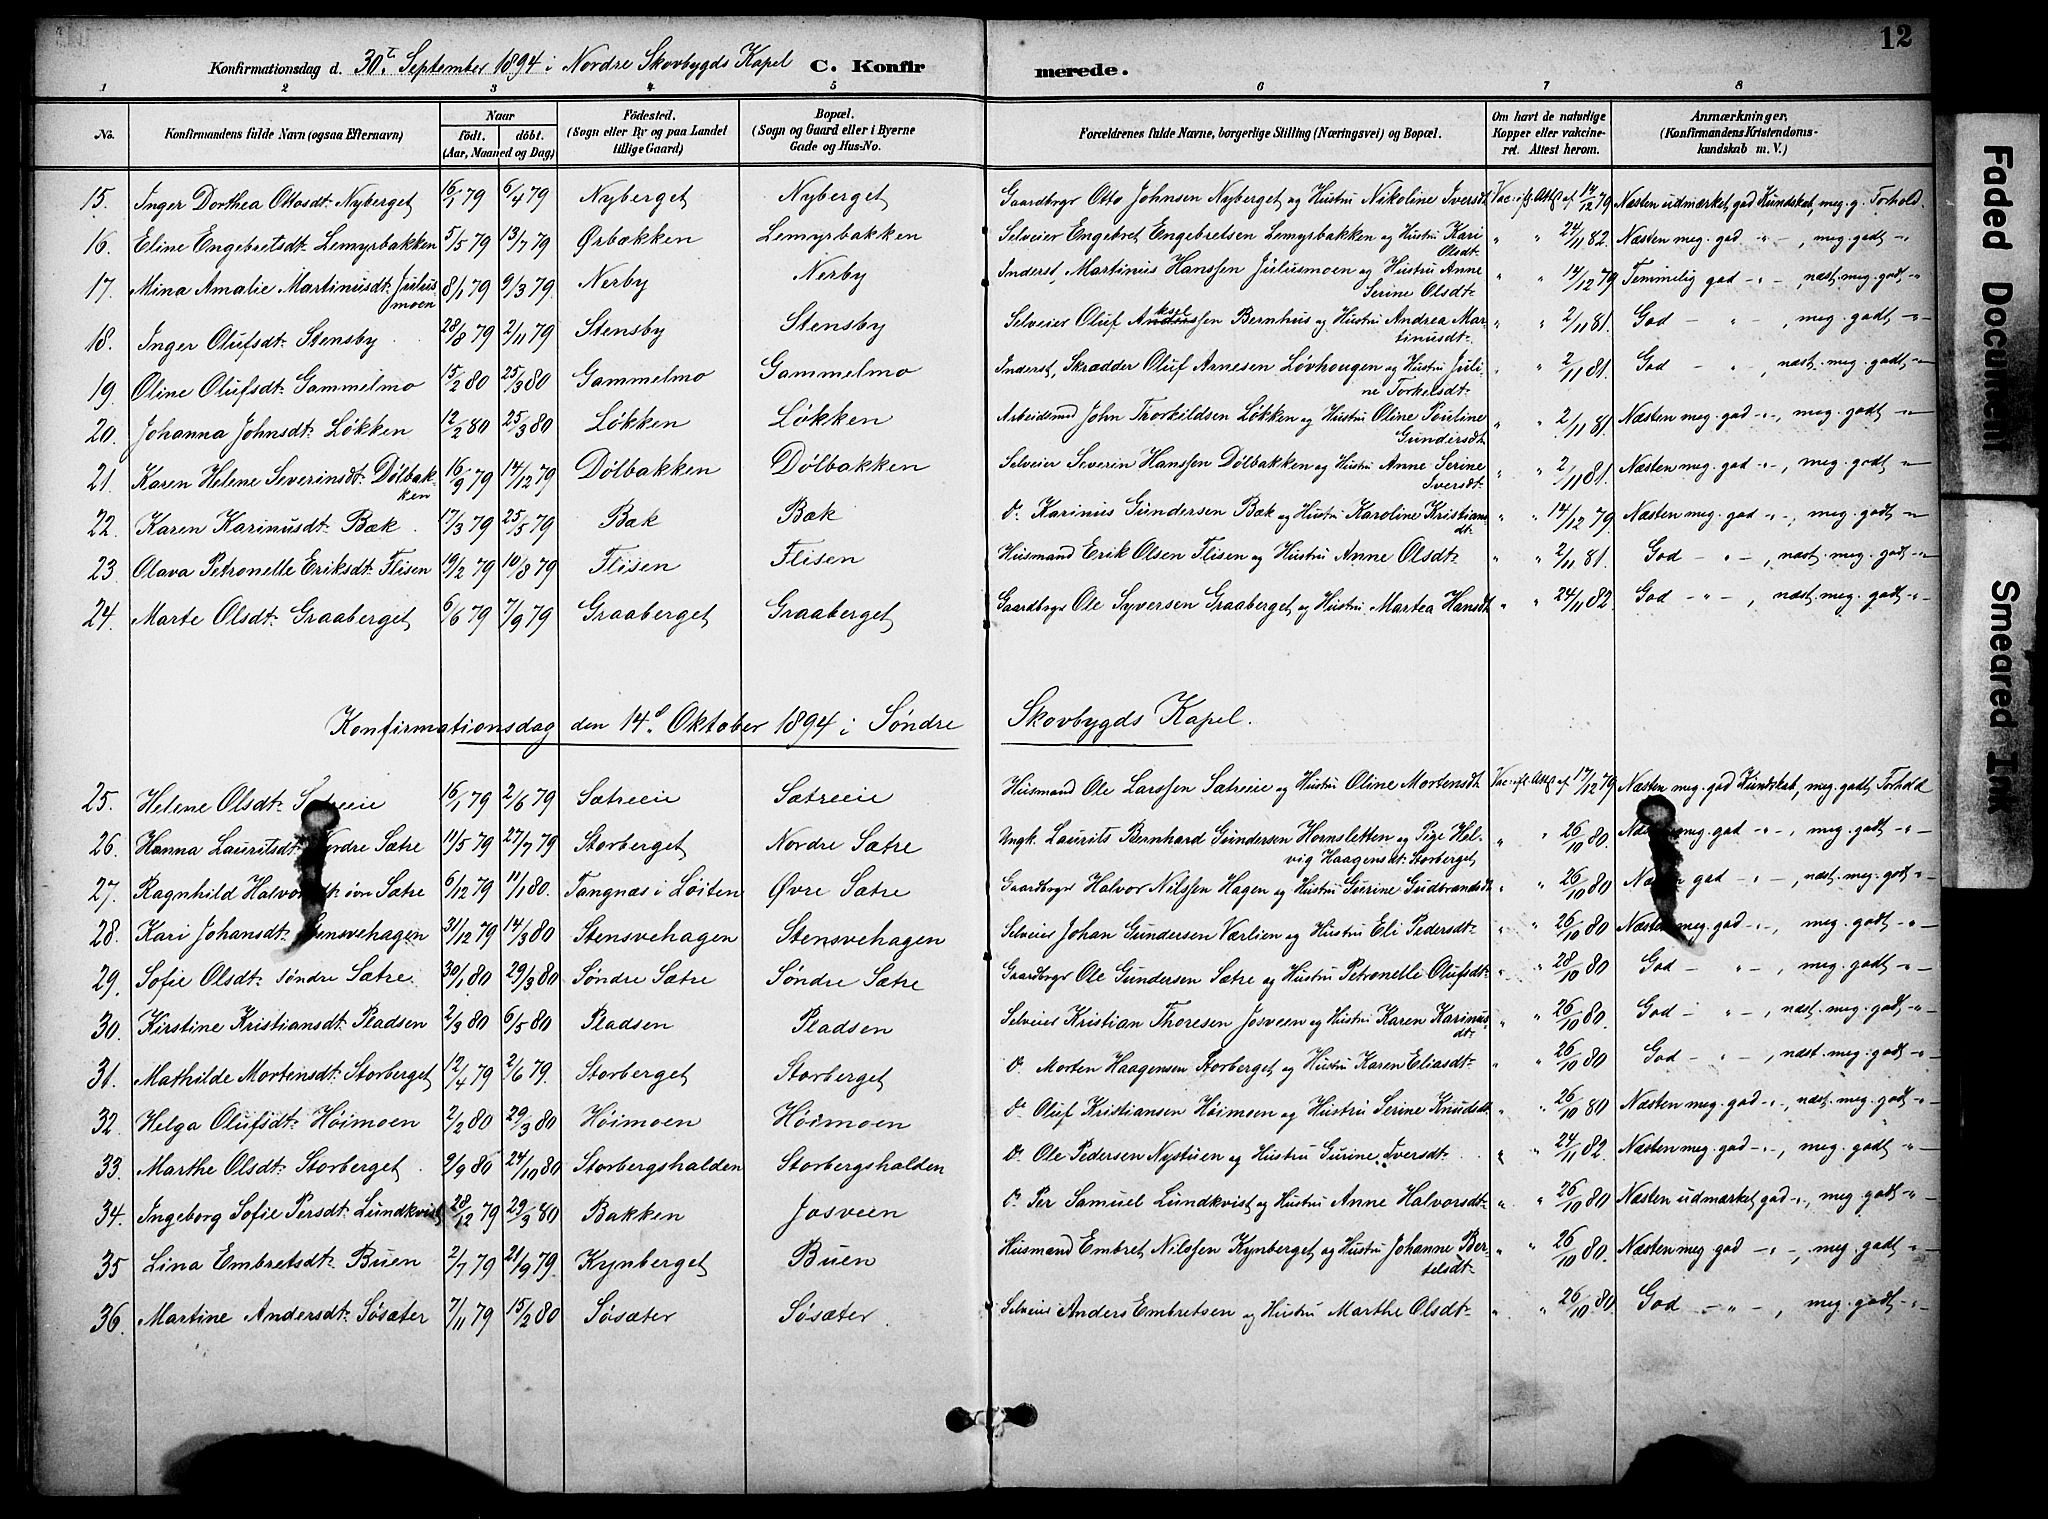 12
Konfirmationsdag d. 30te September 1894 i Nordre Skovbygds Kapel C. Konfirmerede.
1 2 3 4 5 6 7 8
No. Konfirmandens fulde Navn (ogsaa Efternavn) Naar födt. döbt. (Aar, Maaned og Dag) Födested. (Sogn eller By og paa Landet tillige Gaard) Bopæl. (Sogn og Gaard eller i Byerne Gade og Hus-No. Forældrenes fulde Navne, borgerlige Stilling (Næringsvei) og Bopæl. Om havt de naturlige Kopper eller vakcineret. Attest herom. Anmærkninger, (Konfirmandens Kristendomskundskab m. V.)
15. Inger Dorthea Ottosdt. Nyberget 16/1 79 6/4 79 Nyberget Nyberget Gaardbrgr Otto Johnsen Nyberget og Hustru Nikoline Iversdt Vac. ifl. Attst af 14/12 79 Næsten udmærket god Kundskab, meg. g. Forhold.
16. Eline Engebretsdt. Lemyrbakken 5/5 79 13/7 79 Ørbækken Lemyrbakken Selveier Engebret Engebretsen Lemyrbakken og Hustru Kari Olsdt. " " 24/11 82. Næsten meg. god " –, meg. godt "
17. Mina Amalie Martinusdt. Juliusmoen 8/1 79 9/3 79. Nerby Nerby Inderst, Martinus Hanssen Juliusmoen og Hustru Anne Serine Olsdt. " " 14/12 79 Temmelig god – " –, næst. meg. godt, "
18. Inger Olufsdt. Stensby 28/8 79 2/11 79 Stensby Stensby Selveier Oluf Akselssen Bernhus og Hustru Andrea Martinusdt. " " 2/11 81. God – " –, meg. godt "
19. Oline Olufsdt. Gammelmo 15/2 80 25/3 80 Gammelmo Gammelmo Inderst, Skrædder Oluf Arnesen Løvhougen og Hustru Juline Torkelsdt. " " 2/11 81. God " , næst. meg. godt "
20. Johanna Johnsdt. Løkken 12/2 80 25/3 80 Løkken Løkken Arbeidsmd John Thorkildsen Løkken og Hustru Oline Pouline Gundersdt " " 2/11 81. Næsten meg. god " –, meg. godt "
21. Karen Helene Severinsdt. Dølbakken 16/9 79 14/12 79 Dølbakken Dølbakken Selveier Severin Hanssen Dølbakken og Hustru Anne Serine Iversdt. " " 2/11 81. Næsten meg. god " –, meg. godt "
22. Karen Karinusdt. Bæk 17/3 79 25/5 79 Bæk Bæk do. Karinus Gundersen Bæk og Hustru Karoline Kristiansdt. " " 14/12 79. Næsten meg. god " –, meg. godt "
23. Olava Petronelle Eriksdt. Flisen 19/2 79 10/8 79 Flisen Flisen Husmand Erik Olsen Flisen og Hustru Anne Olsdt. " " 2/11 81. God – " –, næst. meg. godt "
24. Marte Olsdt. Graaberget 6/6 79 7/9 79 Graaberget Graaberget Gaardbrgr Ole Syversen Graaberget og Hustru Martea Hansdt " " 24/11 82. God – " –, næst. meg. godt "
Konfirmationsdag den 14de Oktober 1894 i Søndre Skovbygds Kapel.
25. Helene Olsdt. Sætreeie 16/1 79 2/6 79 Sætreeie Sætreeie Husmand Ole Larssen Sætreeie og Hustru Oline Mortensdt Vac. ifl. Attst af 17/12 79 Næsten meg. god Kundskab, meg. godt Forhold
26. Hanna Lauritsdt. Nordre Sætre 11/5 79 27/7 79 Storberget Nordre Sætre Ungk. Laurits Bernhard Gundersen Hornsletten og Pige Helvig Haagensdt. Storberget " " 26/10 80. Næsten meg. god " –, meg. godt "
27. Ragnhild Halvorsdt. Øvre Sætre 6/12 79 11/1 80. Tangnæs i Løiten Øvre Sætre Gaardbrgr Halvor Nilssen Hagen og Hustru Gurine Gudbrandsdt " " 26/10 80 Næsten god – " –, næst. meg. godt "
28. Kari Johansdt. Stensvehagen 31/12 79 14/3 80 Stensvehagen Stensvehagen Selveier Johan Gundersen Værlien og Hustru Eli Pedersdt. " " 26/10 80 Næsten meg. god " –, meg. godt "
29. Sofie Olsdt. søndre Sætre. 30/1 80 29/3 80 Søndre Sætre Søndre Sætre Gaardbrgr Ole Gundersen Sætre og Hustru Petronelle Olufsdt. " " 28/10 80 God – " –, meg. godt "
30. Kirstine Kristiansdt. Pladsen 2/3 80 6/5 80 Pladsen Pladsen Selveier Kristian Thoresen Josveen og Hustru Karen Karinusdt. " " 26/10 80. God – " –, næst. meg. godt "
31. Mathilde Mortensdt. Storberget 12/4 79 2/6 79. Storberget Storberget do. Morten Haagensen Storberget og Hustru Karen Eliasdt. " " 26/10 80 God – " –, næst. meg. godt "
32. Helga Olufsdt. Høimoen 2/2 80 29/3 80 Høimoen Høimoen do. Oluf Kristiansen Høimoen og Hustru Serine Knudsdt. " " 26/10 80 Næsten meg. god " –, næst. meg. godt "
33. Marthe Olsdt. Storberget 9/9 80 24/10 80 Storbergshalden Storbergshalden do. Ole Pedersen Nystuen og Hustru Gurine Iversdt. " " 24/11 82. Næsten meg. god – " –, meg. godt "
34. Ingeborg Sofie Persdt. Lundkvist 28/12 79 29/3 80 Bakken Josveen do. Per Samuel Lundkvist og Hustru Anne Halvorsdt. " " 26/10 80 Næsten udmærket god ", meg. godt "
35 Lina Embretsdt. Buen 2/7 79 21/9 79. Kynberget Buen Husmand Embret Nilssen Kynberget og Hustru Johanne Bertelsdt. " " 26/10 80. Næsten meg god – " –, meg. godt "
36. Martine Andersdt. Søsæter 7/11 79 15/2 80 Søsæter Søsæter Selveier Anders Embretsen og Hustru Marthe Olsdt. " " 26/10 80. God – " –, meg. godt "
Faded Document
Smeared Ink